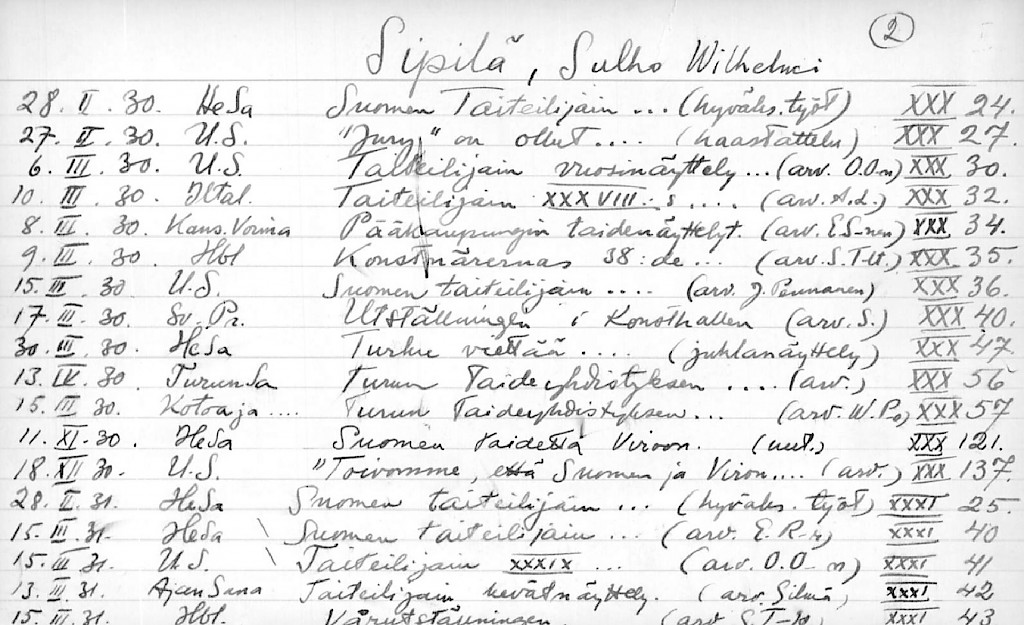 2
Sipilä, Sulho Wilhelmi
28. II. 30. HeSa Suomen Taiteilijain ... (hyväks. työt) XXX 24.
27. II. 30. U.S. "Jury" on ollut .... (haastattelu) XXX 27.
6. III. 30. U.S. Taiteilijain vuosinäyttely ... (arv. O.O-n) XXX 30.
10. III. 30. Iltal. Taiteilijain XXXVIII :s .... (arv. A.L.) XXX 32.
8. III. 30. Kans. Voima Pääkaupungin taidenäyttelyt. (arv. E.S-nen) XXX 34.
9. III. 30. Hbl Konstnärernas 38:de ... (arv. S.T-lt.) XXX 35.
15. III. 30 U.S. Suomen taiteilijain .... (arv. J. Pennanen) XXX 36.
17. III. 30. Sv. Pr. Utställningen i Konsthallen (arv. S.) XXX 40.
30. III. 30. HeSa Turku viettää .... (juhlanäyttely) XXX 47
13. IV. 30 TurunSa Turun Taideyhdistyksen .... (arv.) XXX 56
15. III 30. Kotoaja .... Turun Taideyhdistyksen ... (arv. W.P.) XXX 57
11. XI. 30. HeSa Suomen taidetta Viroon. (uut.) XXX 121.
18. XII 30. U.S. "Toivomme, että Suomen ja Viron.... (arv.) XXX 137.
28. II. 31. HeSa Suomen taiteilijain ... (hyväks. työt) XXXI 25.
15. III. 31. HeSa Suomen taiteilijain ... (arv. E. R-r) XXXI 40
15. III 31. U.S. Taiteilijain XXXIX ... (arv. O.O-n) XXXI 41
13. III. 31. Ajan Sana Taiteilijain kevätnäyttely. (arv. Silmä) XXXI 42
15. III. 31. Hbl. Vårutställningen. (arv. S.T-) XXXI 43